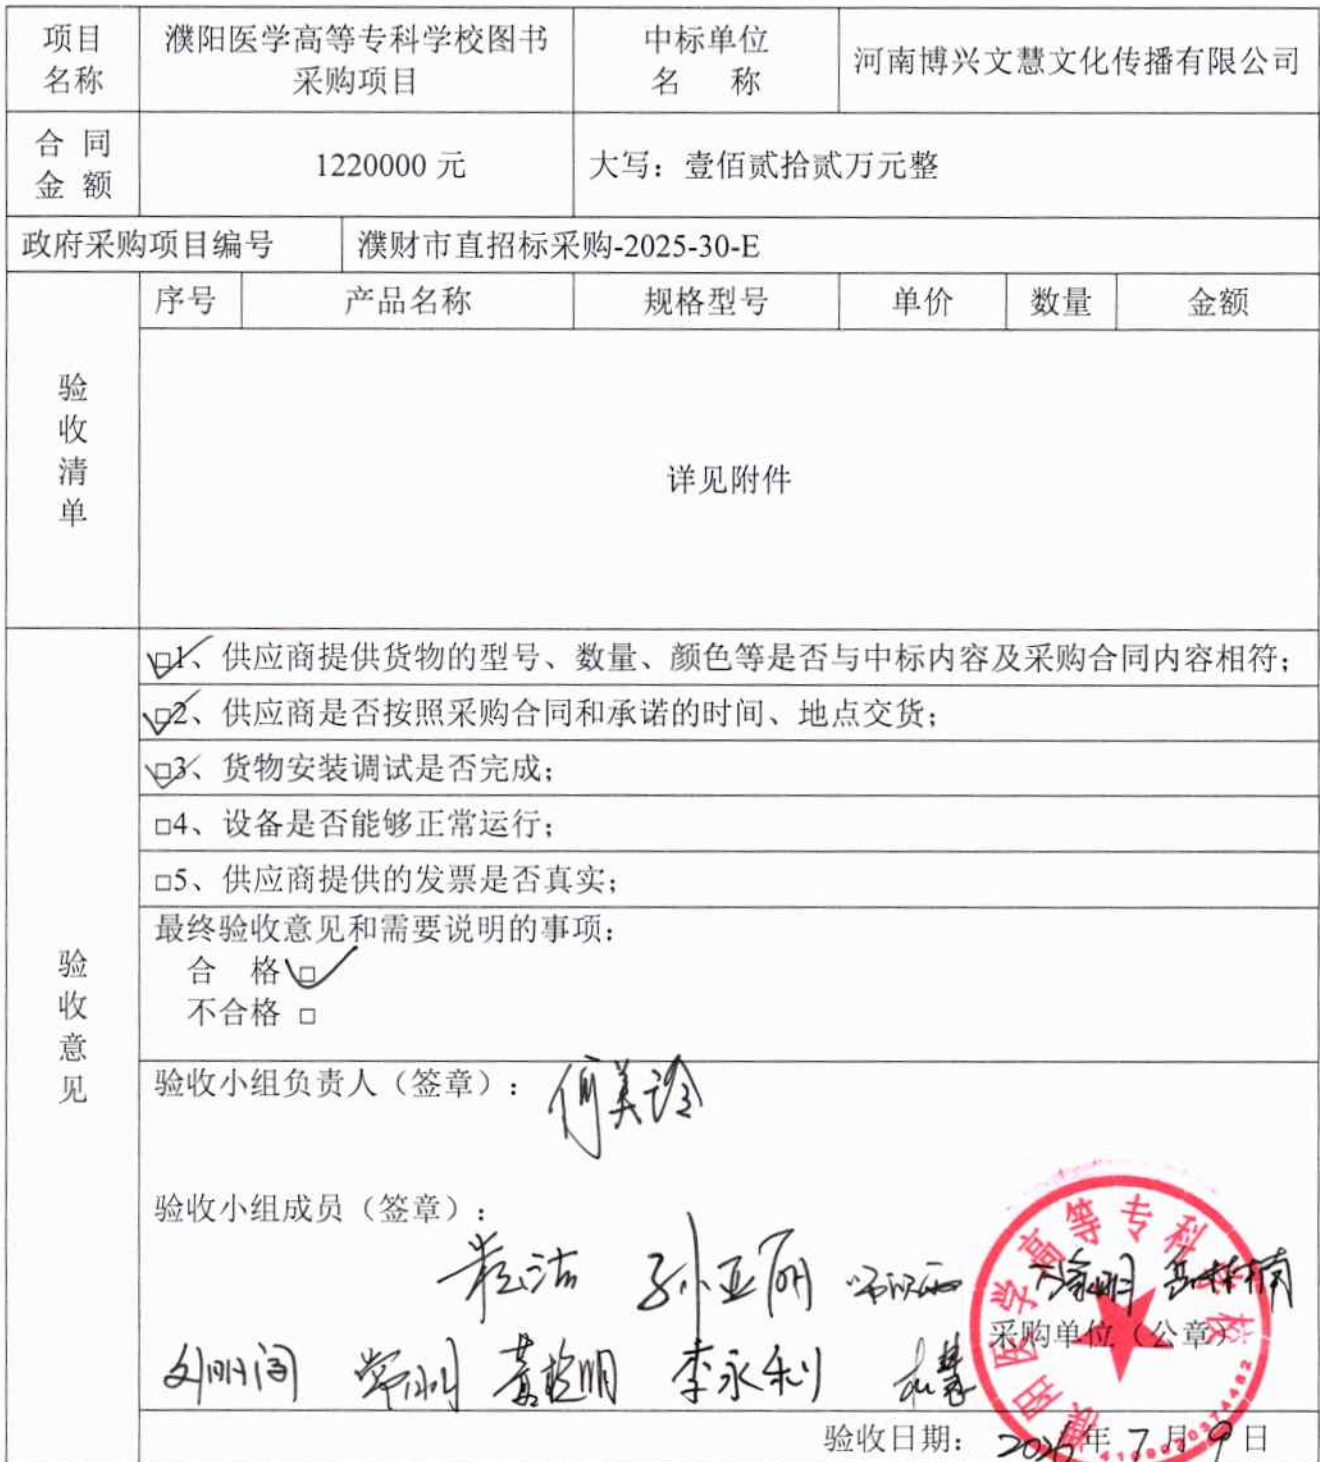 项目名称
濮阳医学高等专科学校图书采购项目
中标单位名 称
河南博兴文慧文化传播有限公司
合同金额
1220000 元
大写：壹佰贰拾贰万元整
政府采购项目编号
濮财市直招标采购-2025-30-E
验收清单
序号 产品名称 规格型号 单价 数量 金额
详见附件
验收意见
□1、供应商提供货物的型号、数量、颜色等是否与中标内容及采购合同内容相符；
□2、供应商是否按照采购合同和承诺的时间、地点交货；
□3、货物安装调试是否完成；
□4、设备是否能够正常运行；
□5、供应商提供的发票是否真实；
最终验收意见和需要说明的事项：
合 格 □
不合格 □
验收小组负责人（签章）：
验收小组成员（签章）：
孙亚丽
采购单位（公章）
李永利
濮阳医学高等专科学校
验收日期： 年 7 月 9 日